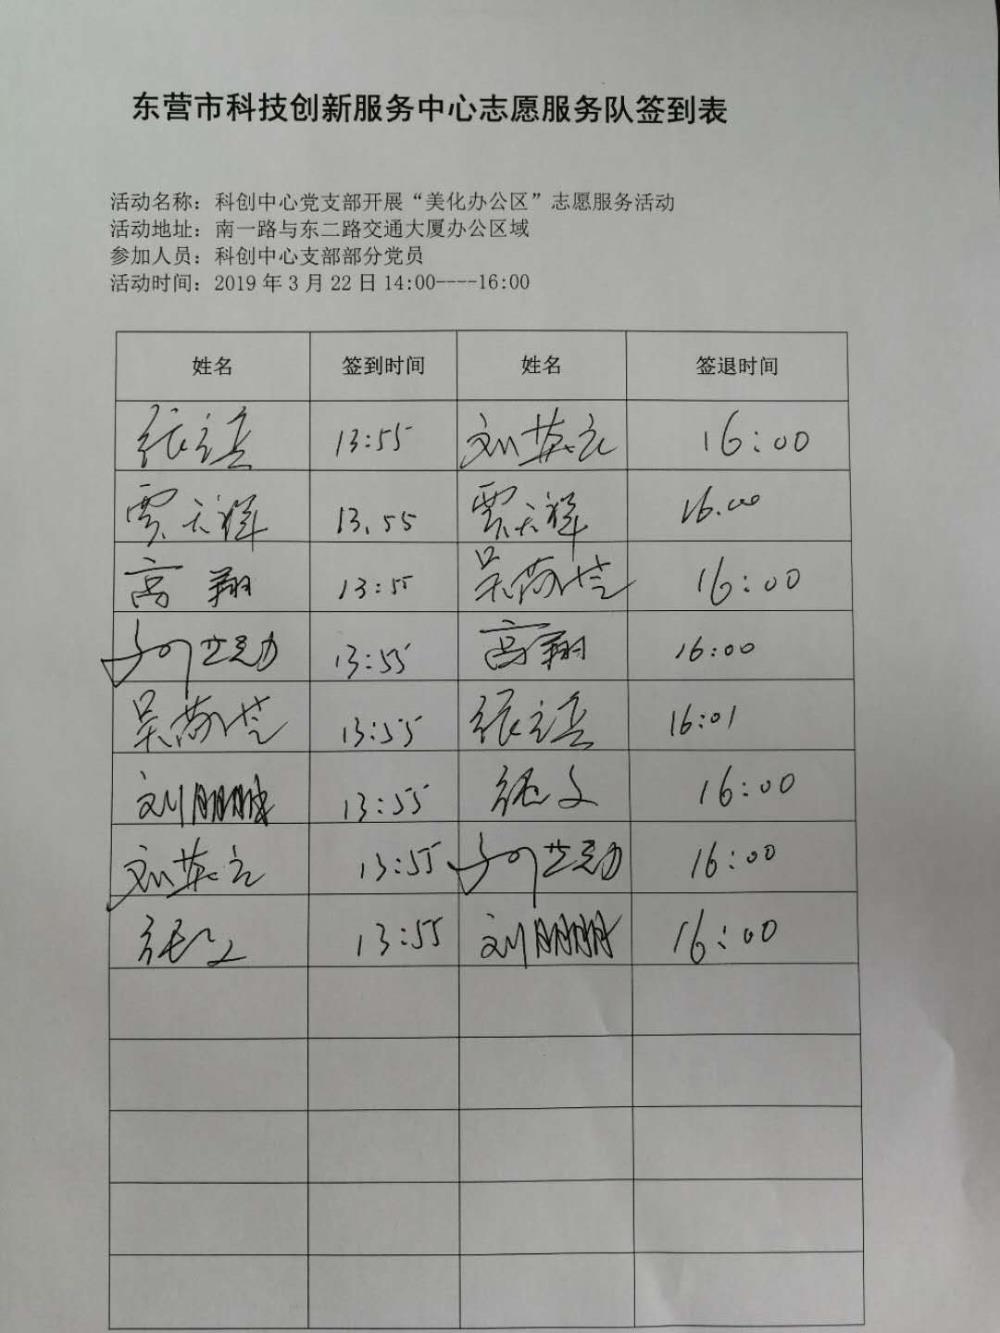 东营市科技创新服务中心志愿服务队签到表
活动名称：科创中心党支部开展“美化办公区”志愿服务活动
活动地址：南一路与东二路交通大厦办公区域
参加人员：科创中心支部部分党员
活动时间：2019年3月22日14:00----16:00
姓名 签到时间 姓名 签退时间
张 13:55 刘英 16:00
贾天祥 13.55 贾天祥 16.00
高翔 13:55 吴 16:00
13:55 高翔 16:00
吴 13:55 张 16:01
刘鹏 13:55 张文 16:00
刘英 13:55 16:00
张文 13:55 刘鹏 16:00